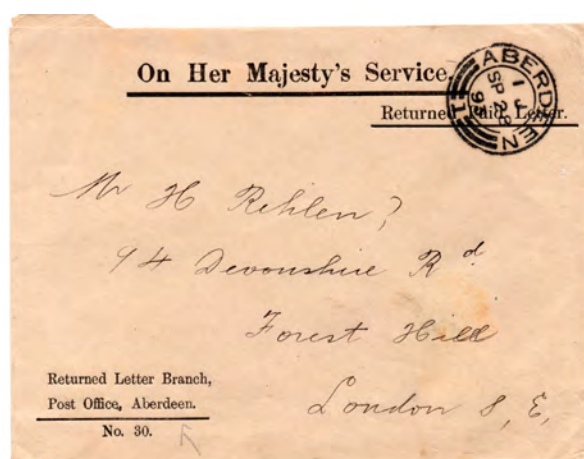 On Her Majesty's Service.
Returned Paid Letter.
ABERDEEN
1 
SP 28
95
1
Mr H Rehlen?
94 Devonshire Rd
Forest Hill
London S, E,
Returned Letter Branch,
Post Office, Aberdeen.
No. 30.